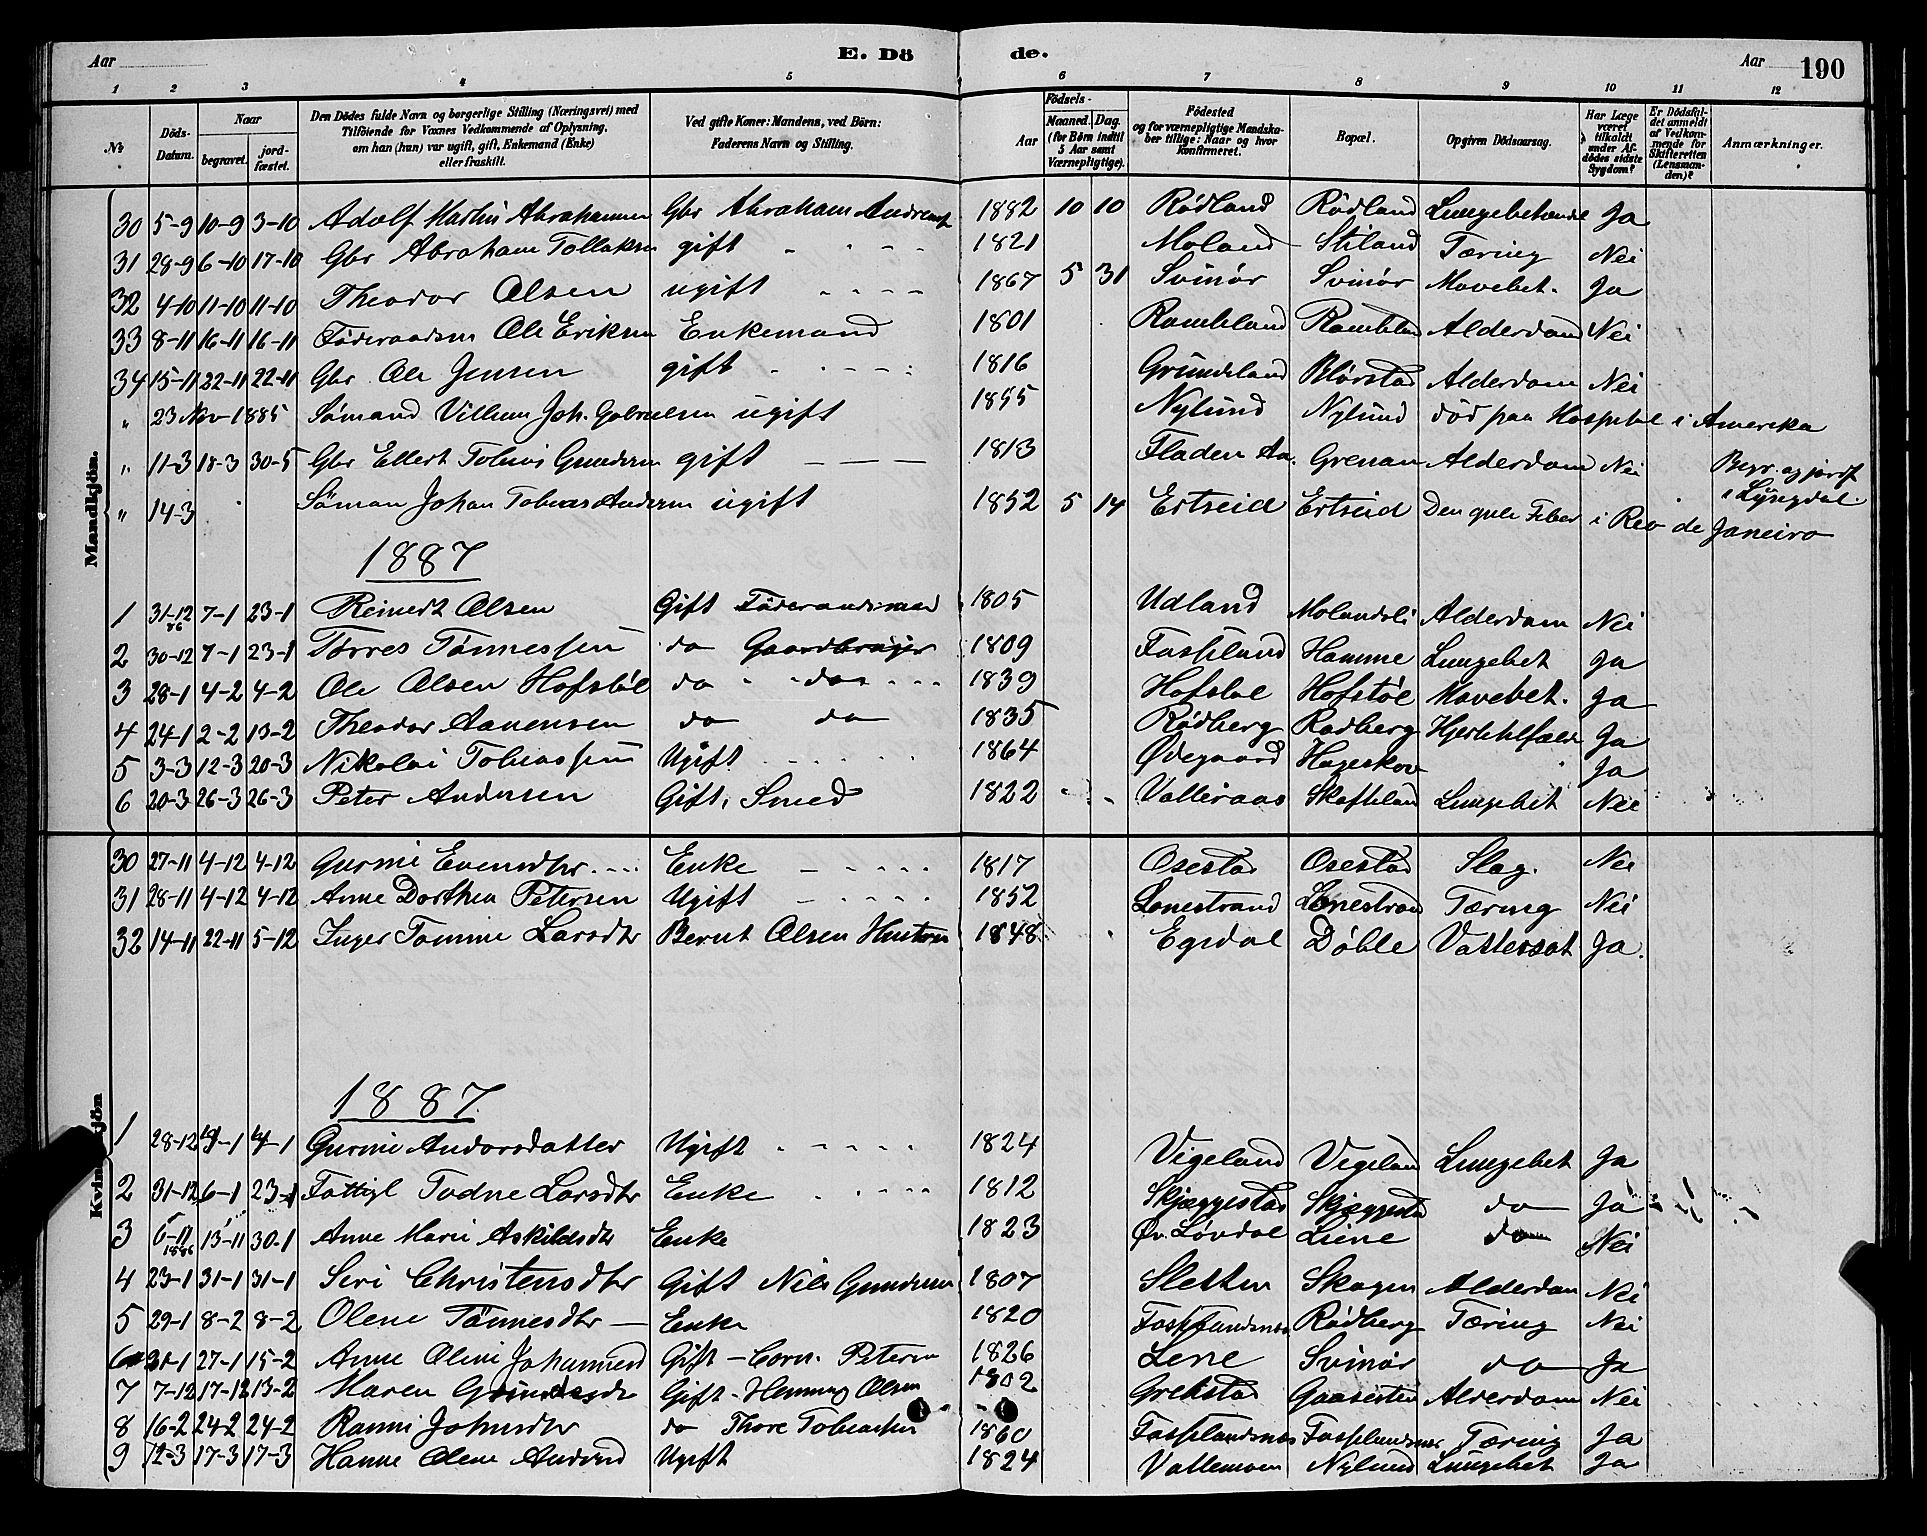 Aar E. Dö de. Aar 190
1 2 3 4 5 6 7 8 9 10 11 12
No Döds-Datum. Naar begravet. jordfæstet. Den Dödes fulde Navn og borgerlige Stilling (Næringsvei) med Tilföiende for Voxnes Vedkommende af Oplysning, om han (hun) var ugift, gift, Enkemand (Enke) eller fraskilt. Ved gifte Koner: Mandens, ved Börn: Faderens Navn og Stilling. Födsels- Aar Maaned. Dag. (for Børn indtil 5 Aar samt Værnepligtige). Födested og for værnepligtige Mandskaber tillige: Naar og hvor konfirmeret. Bopæl. Opgiven Dödsaarsag. Har Læge været tilkaldt under Afdödes sidste Sygdom? Er Dödsfaldet anmeldt af Vedkommende for Skifteretten (Lensmanden)? Anmærkninger.
Mandkjön.
30 5-9 10-9 3-10 Adolf Martin Abrahamsen Gbr Abraham Andreas 1882 10 10 Rødland Rødland Lungebetændel Ja
31 28-9 6-10 17-10 Gbr Abraham Tollaksen gift 1821 Moland Stiland Tæring Nei
32 4-10 11-10 11-10 Theodor Olsen ugift 1867 5 31 Svinør Svinør Mavebet. Ja
33 8-11 16-11 16-11 Føderaadsm Ole Eriksen Enkemand 1801 Ramsland Alderdom Nei
34 15-11 22-11 22-11 Gbr Ole Jensen gift 1816 Grundeland Blørstad Alderdom Nei
" 23 Nov 1885 Sømand Villum Joh. Gabrielsen ugift 1855 Nylund Nylund død paa Hospital i Amerika
" 11-3 18-3 30-5 Gbr Ellert Tobias Gundersen gift 1813 Fladen Aa. Grenan Alderdom Nei Begr. og jordf i Lyngdal.
" 14-3 Søman Johan Tobias Andersen ugift 1852 5 14 Ertseid Ertseid Den gule Feber i Rio de Janeiro
1887
1 31-12 86 7-1 23-1 Reinert Olsen Gift Føderaadsmand 1805 Udland Molandsli Alderdom Nei
2 30-12 7-1 23-1 Tørres Tønnessen do Gaardbruger 1809 Fasseland Homme Lungebet Ja
3 28-1 4-2 4-2 Ole Olsen Hofstøl do do 1839 Hofstøl Hofstøl Mavebet. Ja
4 24-1 2-2 13-2 Theodor Aanensen do do 1835 Rødberg Rødberg Ja
5 3-3 12-3 20-3 Nikolai Tobiassen Ugift 1864 Ødegaard Hageskov Ja
6 20-3 26-3 26-3 Peter Andersen Gift, Smed 1822 Valleraas Skofteland Lungebet Nei
Kvindekjön
30 27-11 4-12 4-12 Gurine Evensdtr Enke 1817 Osestad Osestad Slag. Nei
31 28-11 4-12 4-12 Anne Dorthea Petersen Ugift 1852 Lonestrand Lonestrand Tæring Nei
32 14-11 22-11 5-12 Inger Tomine Larsdtr Bernt Olsen 1848 Egedal Døble Vattersot Ja.
1887.
1 28-12 4-1 Gurine Andorsdatter Ugift 1824 Vigeland Vigeland Lungebet Ja
2 31-12 6-1 23-1 Fattigl Todne Larsdtr Enke 1812 Skjæggestad Skjæggestad do Ja
3 6-11 1886 13-11 30-1 Anne Marie Askildsdtr Enke 1823 Øv. Løvdal Liene do Nei
4 23-1 31-1 31-1 Siri Christensdtr Gift Nils Gundersen 1807 Sletten Skogen Alderdom Nei
5 29-1 8-2 8-2 Olene Tønnesdtr Enke 1820 Fasselandsnes Rødberg Tæring Nei
6 31-1 27-1 15-2 Anne Oline Johannesd Gift - Corn. Petersen 1826 Lene Svinør do Ja
7 7-12 17-12 13-2 Maren Gift - Henning Olsen 1802 Grekstad Alderdom Nei
8 16-2 24-2 24-2 Ranni Johnsdtr do Thore Tobiassen 1860 Fasselandsnes Fasselandsnes Tæring Ja
9 12-3 17-3 17-3 Hanne Olene Andersd Ugift 1824 Vallemoen Nylund Lungebet Ja